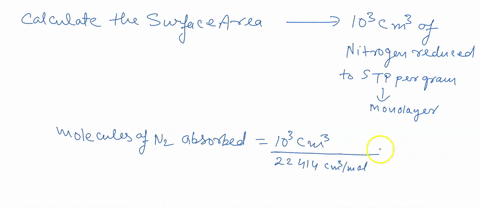 Calculate the Surface Area ⟶ 10³ cm³ of
Nitrogen reduced
to STP per gram
↓
monolayer
molecules of N₂ absorbed = 10³ cm³
22414 cm³/mol